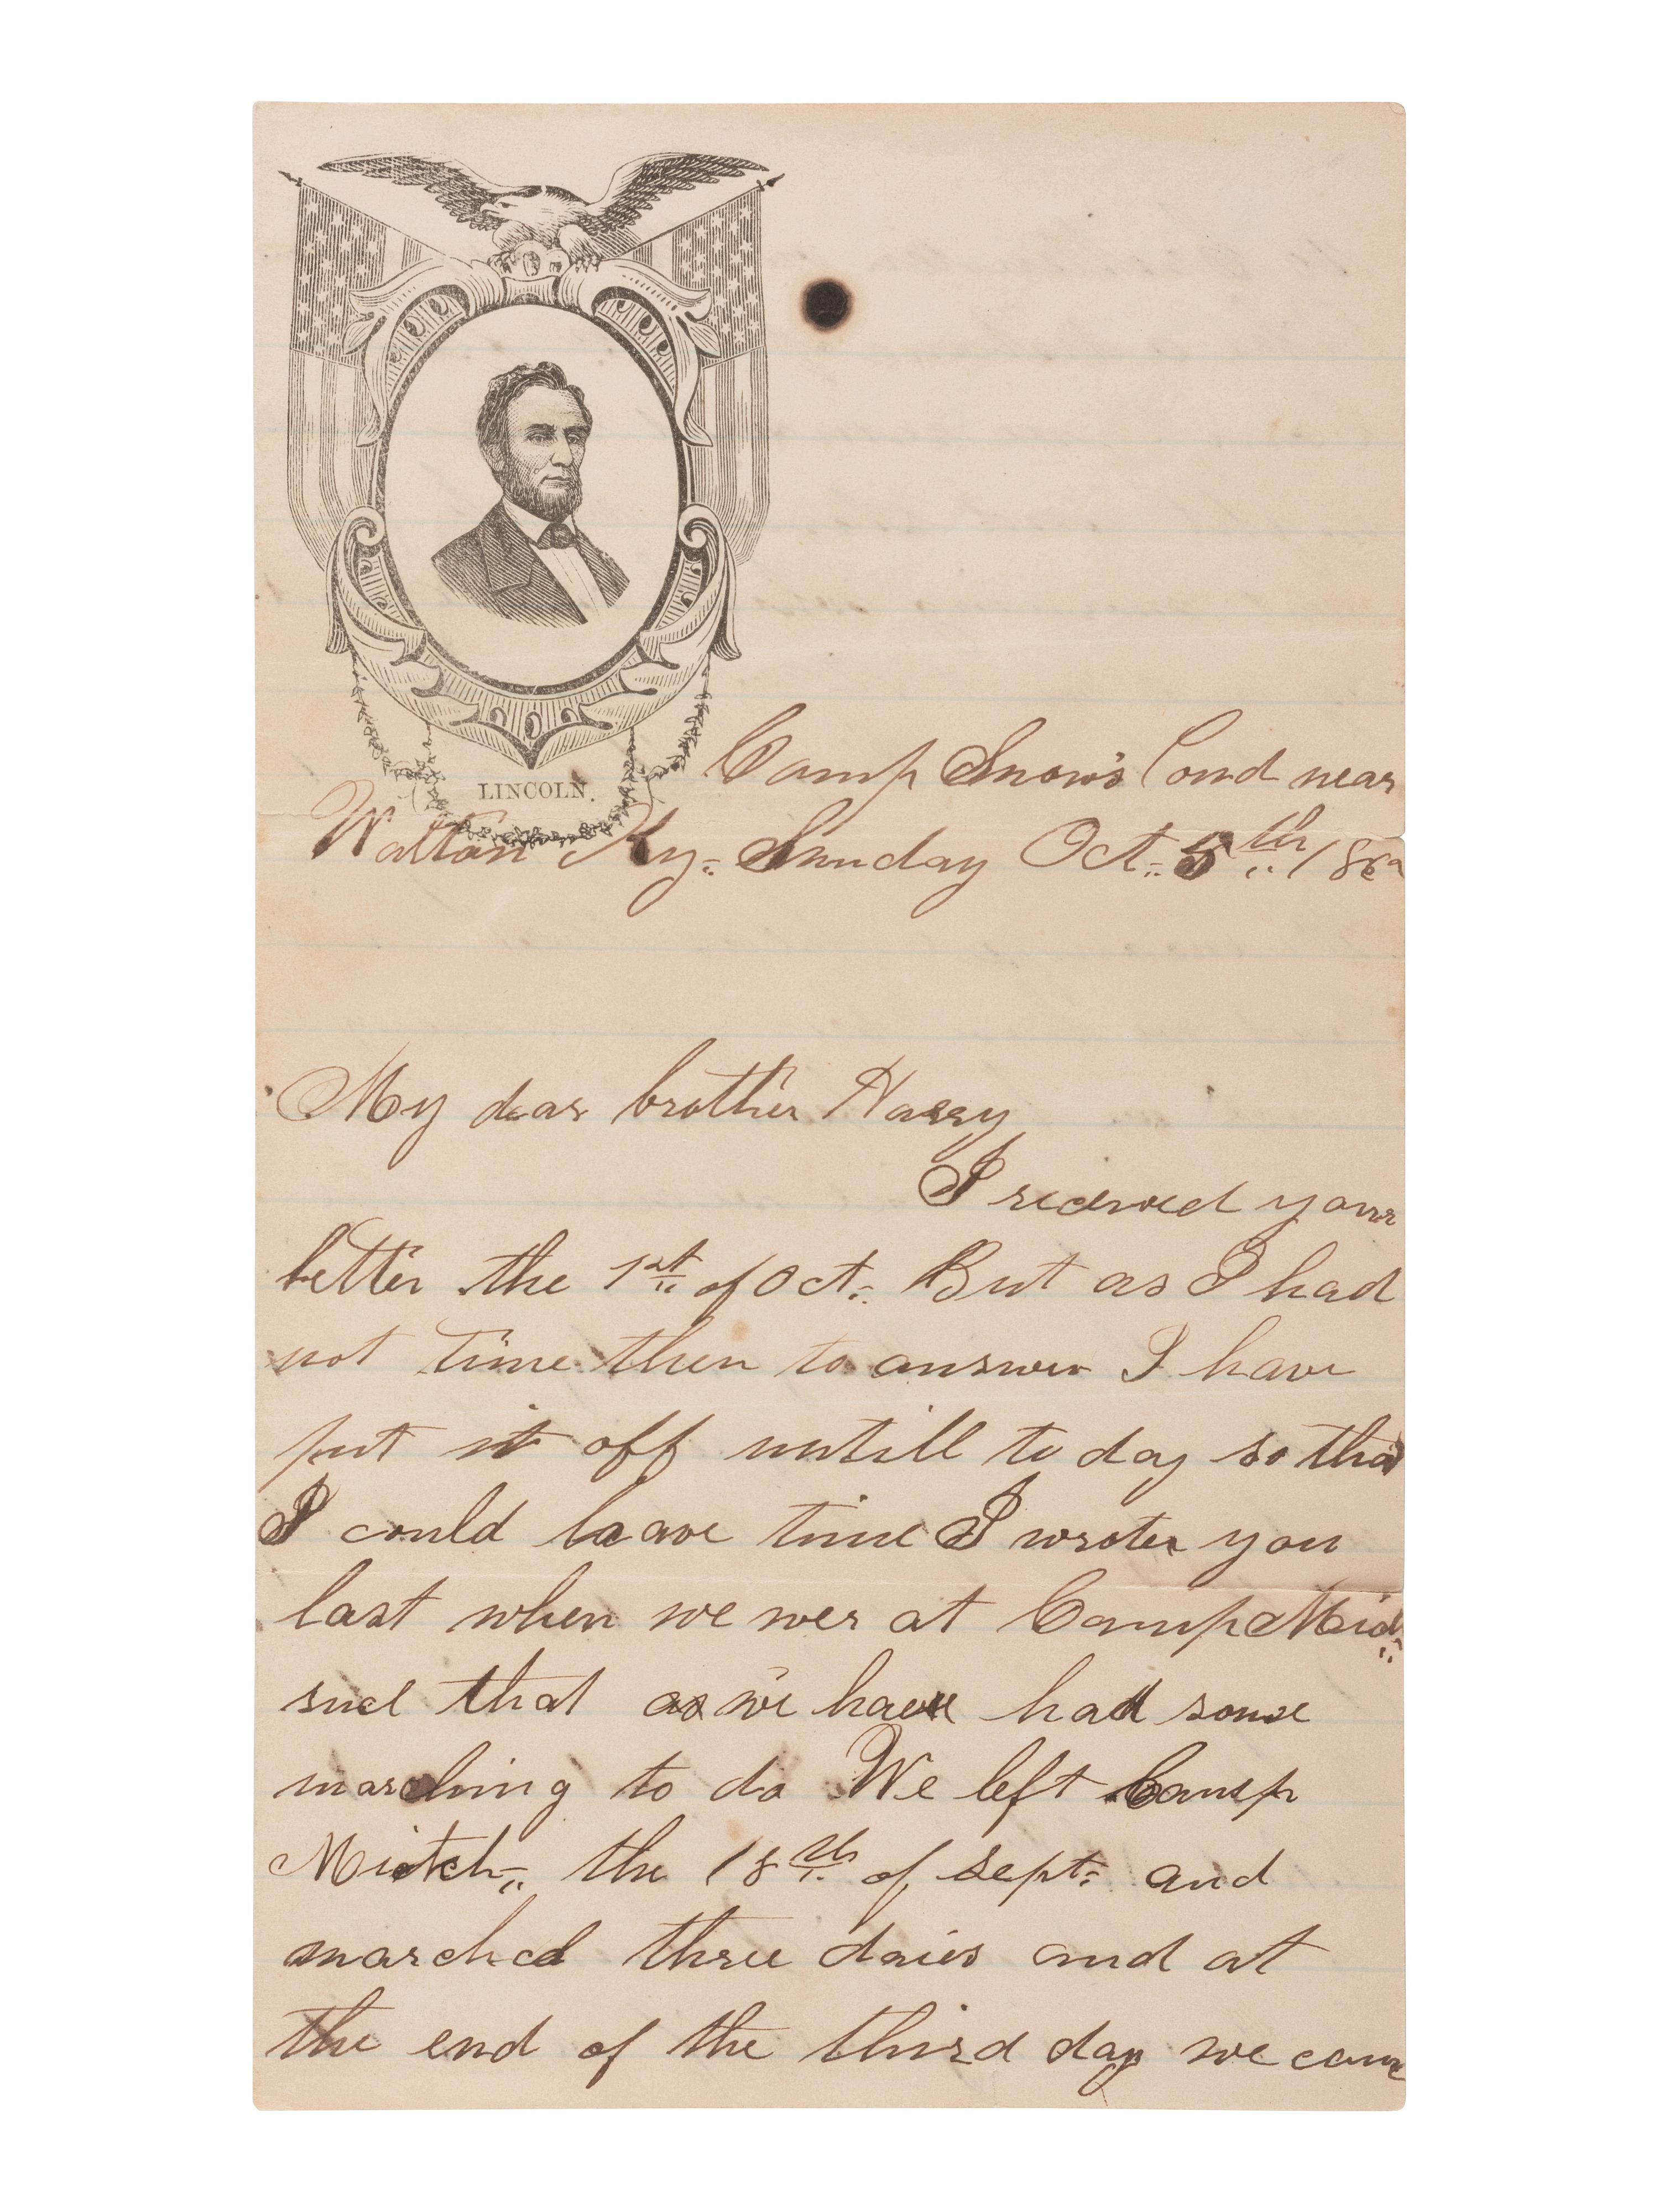 LINCOLN.
Camp Snow's Pond near
Walton Ky. Sunday Oct. 5th 186
My dear brother Harry
I recieved your
letter the 1st of Oct. But as I had
not time then to answer I have
put it off untill to day so that
I could have time I wrote you
last when we wer at Camp
that as we have had some
marching to do We left Camp
Mitch. the 18th of Sept. and
marched three daies and at
the end of the third day we came